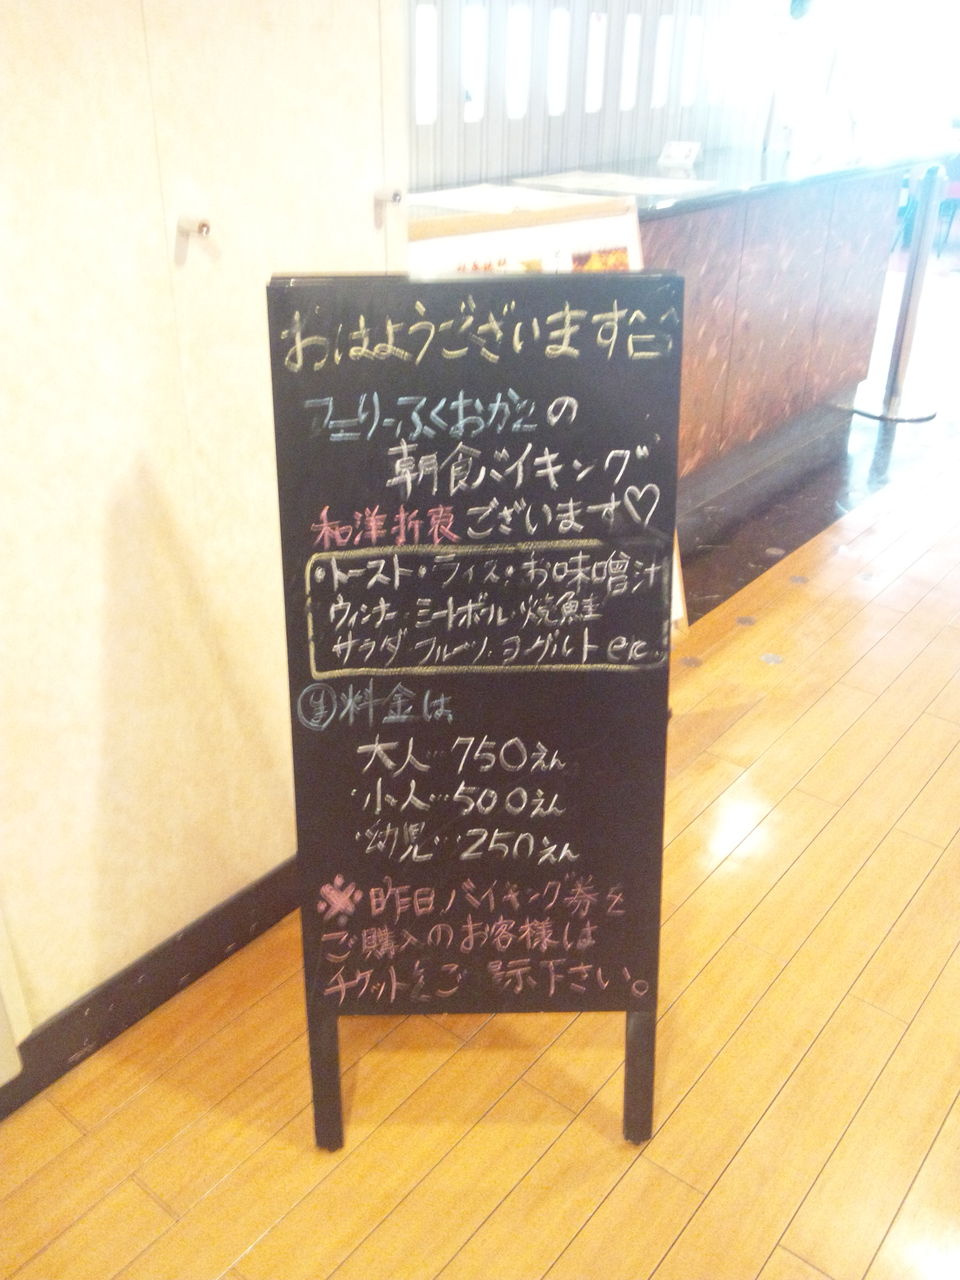 おはようございます
フェリーふくおかⅡの
朝食バイキング
和洋折衷ございます♡
・トースト・ライス・お味噌汁
ウィンナー ミートボール・焼鮭
サラダ フルーツ ヨーグルト etc.
料金は
大人…750えん
小人…500えん
幼児…250えん
※昨日バイキング券を
ご購入のお客様は
チケットをご提示下さい。